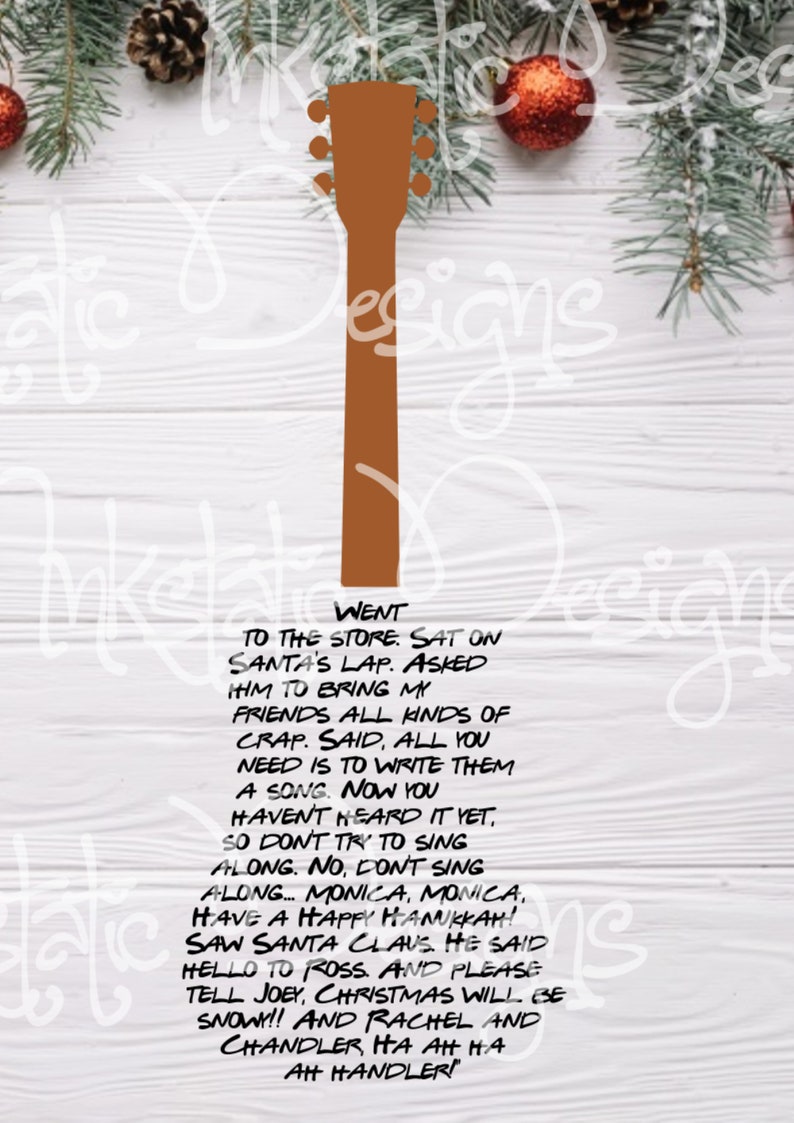 Inkstatic Designs
static Designs
Inkstatic Designs
static Designs
WENT
TO THE STORE. SAT ON
SANTA'S LAP. ASKED
HIM TO BRING MY
FRIENDS ALL KINDS OF
CRAP. SAID, ALL YOU
NEED IS TO WRITE THEM
A SONG. NOW YOU
HAVEN'T HEARD IT YET,
SO DON'T TRY TO SING
ALONG. NO, DON'T SING
ALONG... MONICA, MONICA,
HAVE A HAPPY HANUKKAH!
SAW SANTA CLAUS. HE SAID
HELLO TO ROSS. AND PLEASE
TELL JOEY, CHRISTMAS WILL BE
SNOWY!! AND RACHEL AND
CHANDLER, HA AH HA
AH HANDLER!"